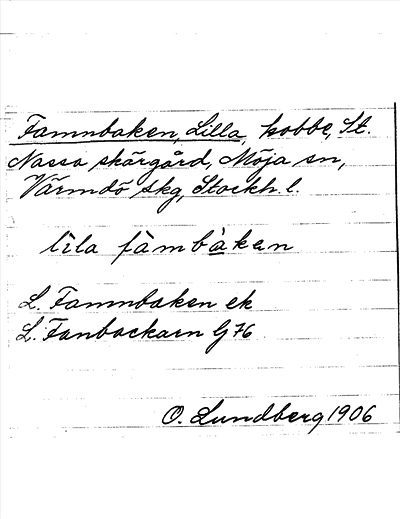 Famnbaken, Lilla, kobbe, St.
Nassa skärgård, Möja sn,
Värmdö skg, Stockh. l.
lìla fàmbàken
L. Famnbaken ek
L. Fanbackarn G 76
O. Lundberg 1906